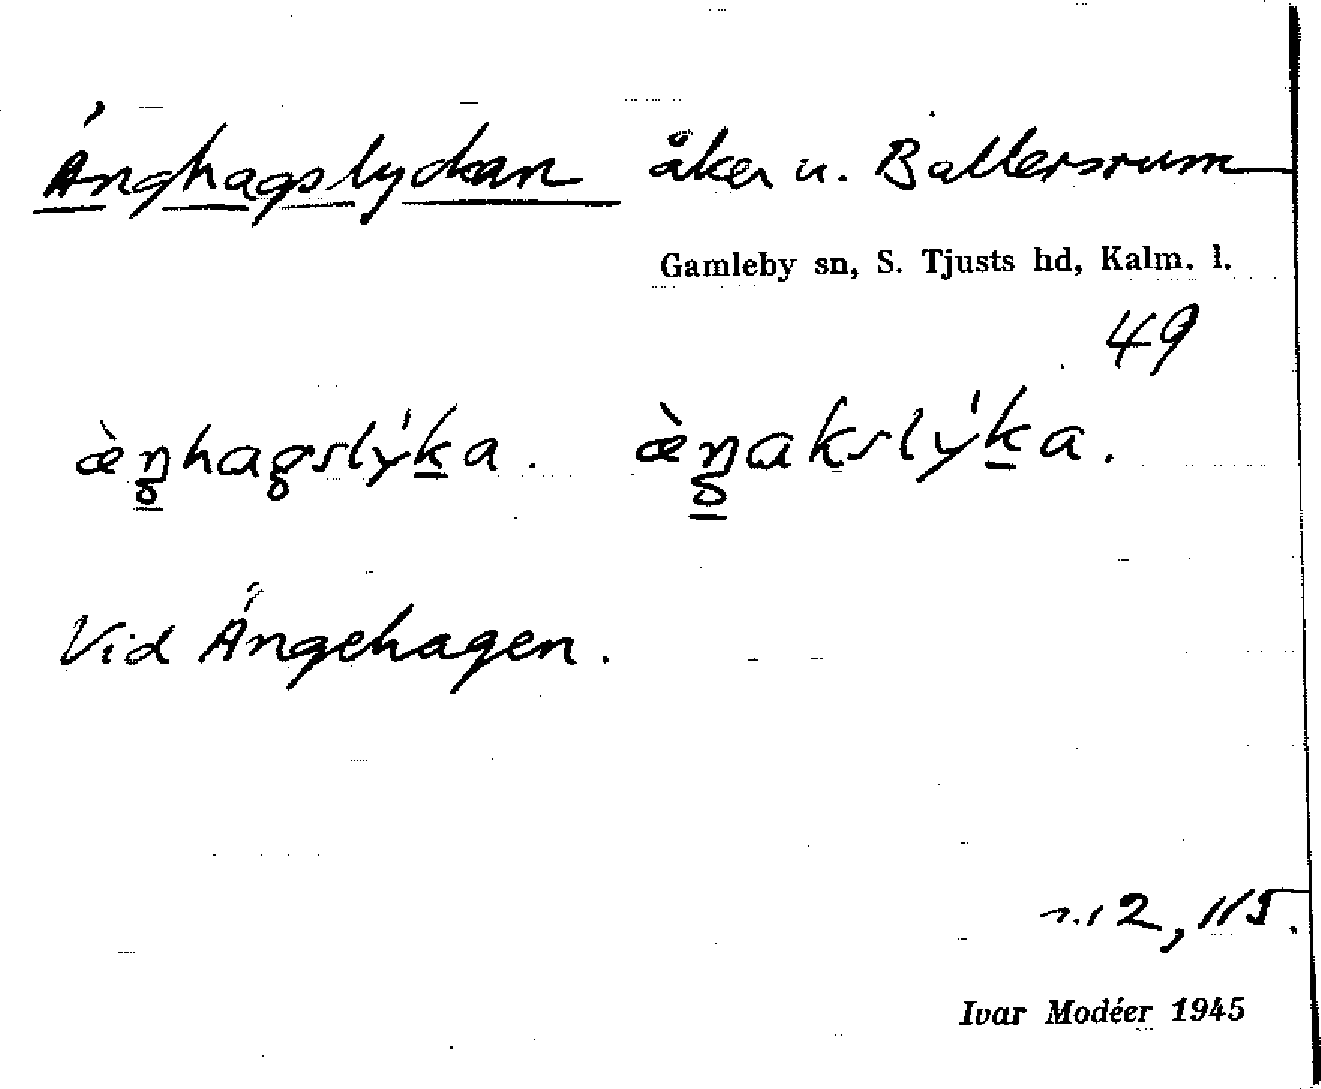 Änghagslyckan åker u. Ballersrum
Gamleby sn, S. Tjusts hd, Kalm. l.
49
æ̀ŋhagslýka. æ̀ŋakslýka.
Vid Ängehagen.
12, 115.
Ivar Modéer 1945